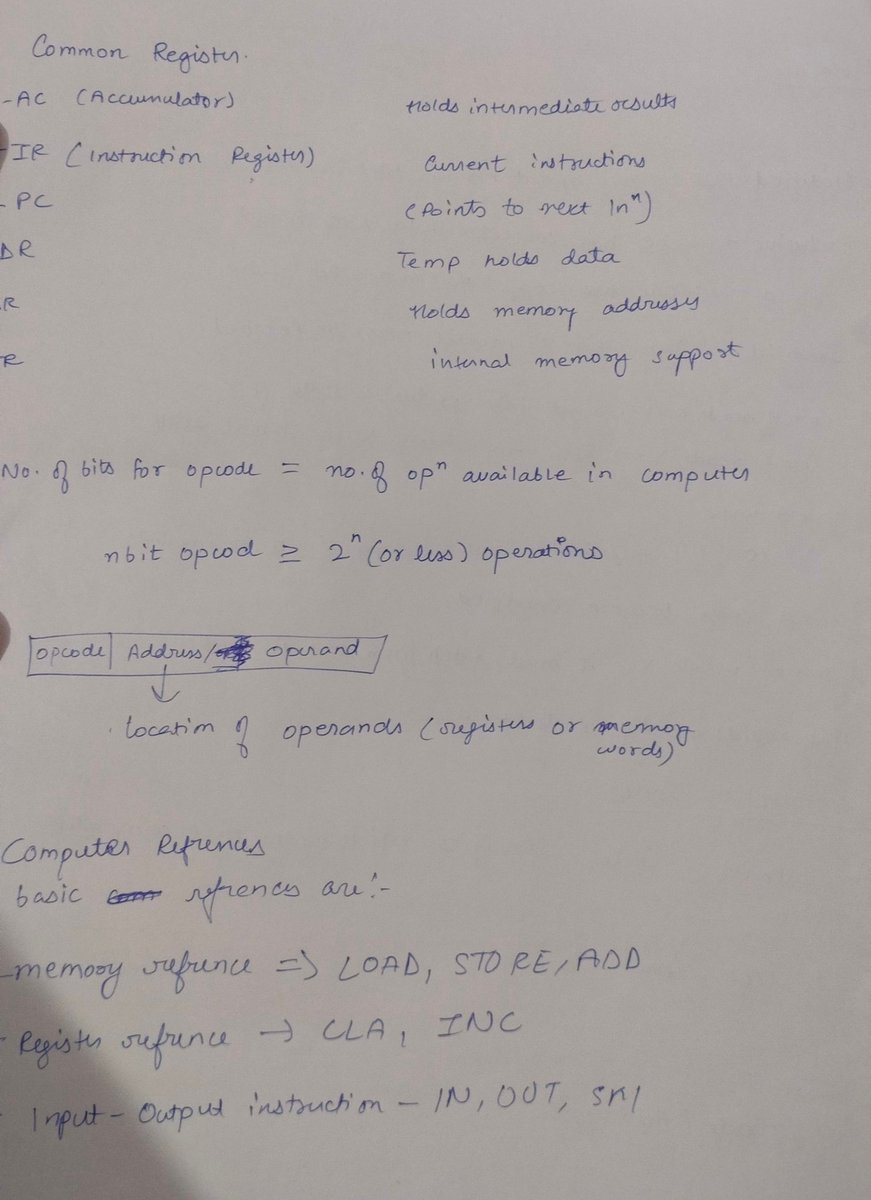 Common Register.
-AC (Accumulator) Holds intermediate results
-IR (Instruction Register) Current instructions
-PC (Points to next Inⁿ)
DR Temp holds data
R Holds memory addresses
R internal memory support
No. of bits for opcode = no. of opⁿ available in computer
nbit opcod ≥ 2ⁿ (or less) operations
opcode Address/ Operand
location of operands (registers or memoy
words)
Computer Refrences
basic refrences are:-
-memory refrence => LOAD, STORE, ADD
- Register refrence → CLA, INC
- Input-Output instruction - IN, OUT, SKI